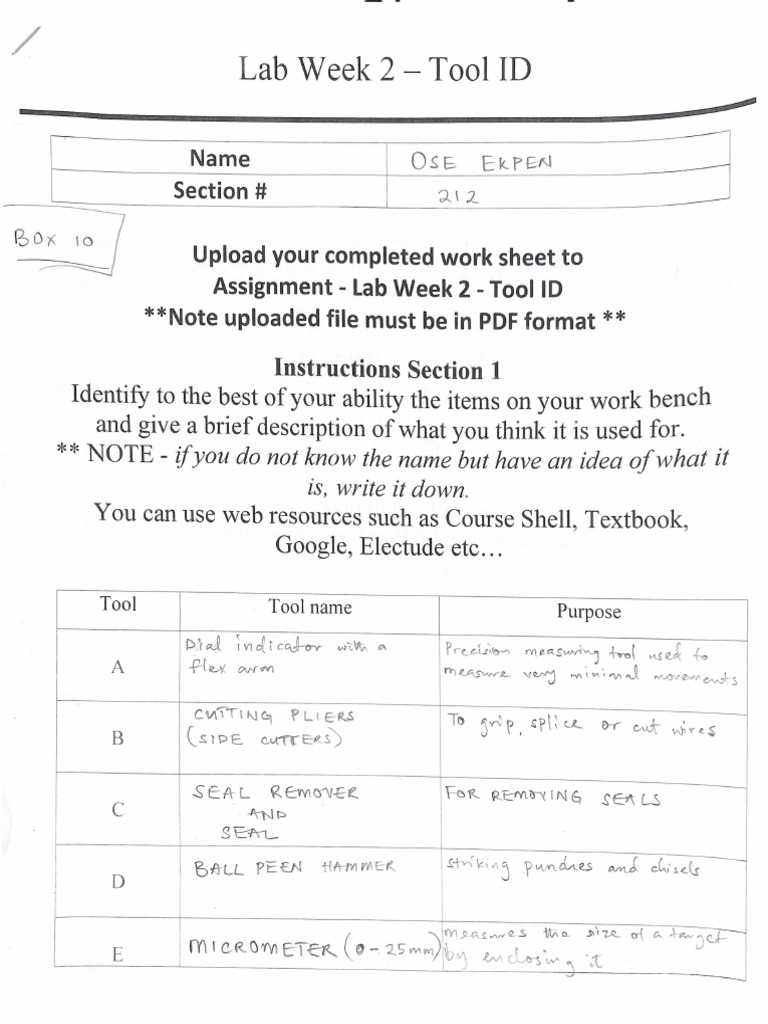 Lab Week 2 – Tool ID
Name OSE EKPEN
Section # 212
BOX 10
Upload your completed work sheet to
Assignment - Lab Week 2 - Tool ID
**Note uploaded file must be in PDF format **
Instructions Section 1
Identify to the best of your ability the items on your work bench
and give a brief description of what you think it is used for.
** NOTE - if you do not know the name but have an idea of what it
is, write it down.
You can use web resources such as Course Shell, Textbook,
Google, Electude etc…
Tool Tool name Purpose
A
Dial indicator with a
flex arm
Precision measuring tool used to
measure very minimal movements
B
CUTTING PLIERS
(SIDE CUTTERS)
To grip, splice or cut wires
C
SEAL REMOVER
AND
SEAL
FOR REMOVING SEALS
D
BALL PEEN HAMMER
striking punches and chisels
E
MICROMETER (0-25mm)
measures the size of a target
by enclosing it